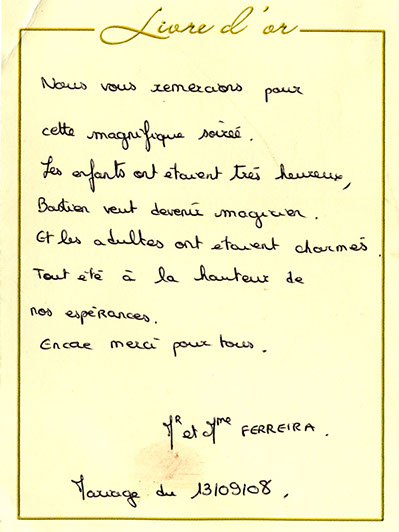 Livre d'or
Nous vous remercions pour
cette magnifique soireé.
Les enfants ont étaient très heureux,
Bastien veut devenir magicien.
Et les adultes ont étaient charmés.
Tout été à la hauteur de
nos espérances.
Encore merci pour tous.
Mr et Mme FERREIRA.
Mariage du 13/09/08.